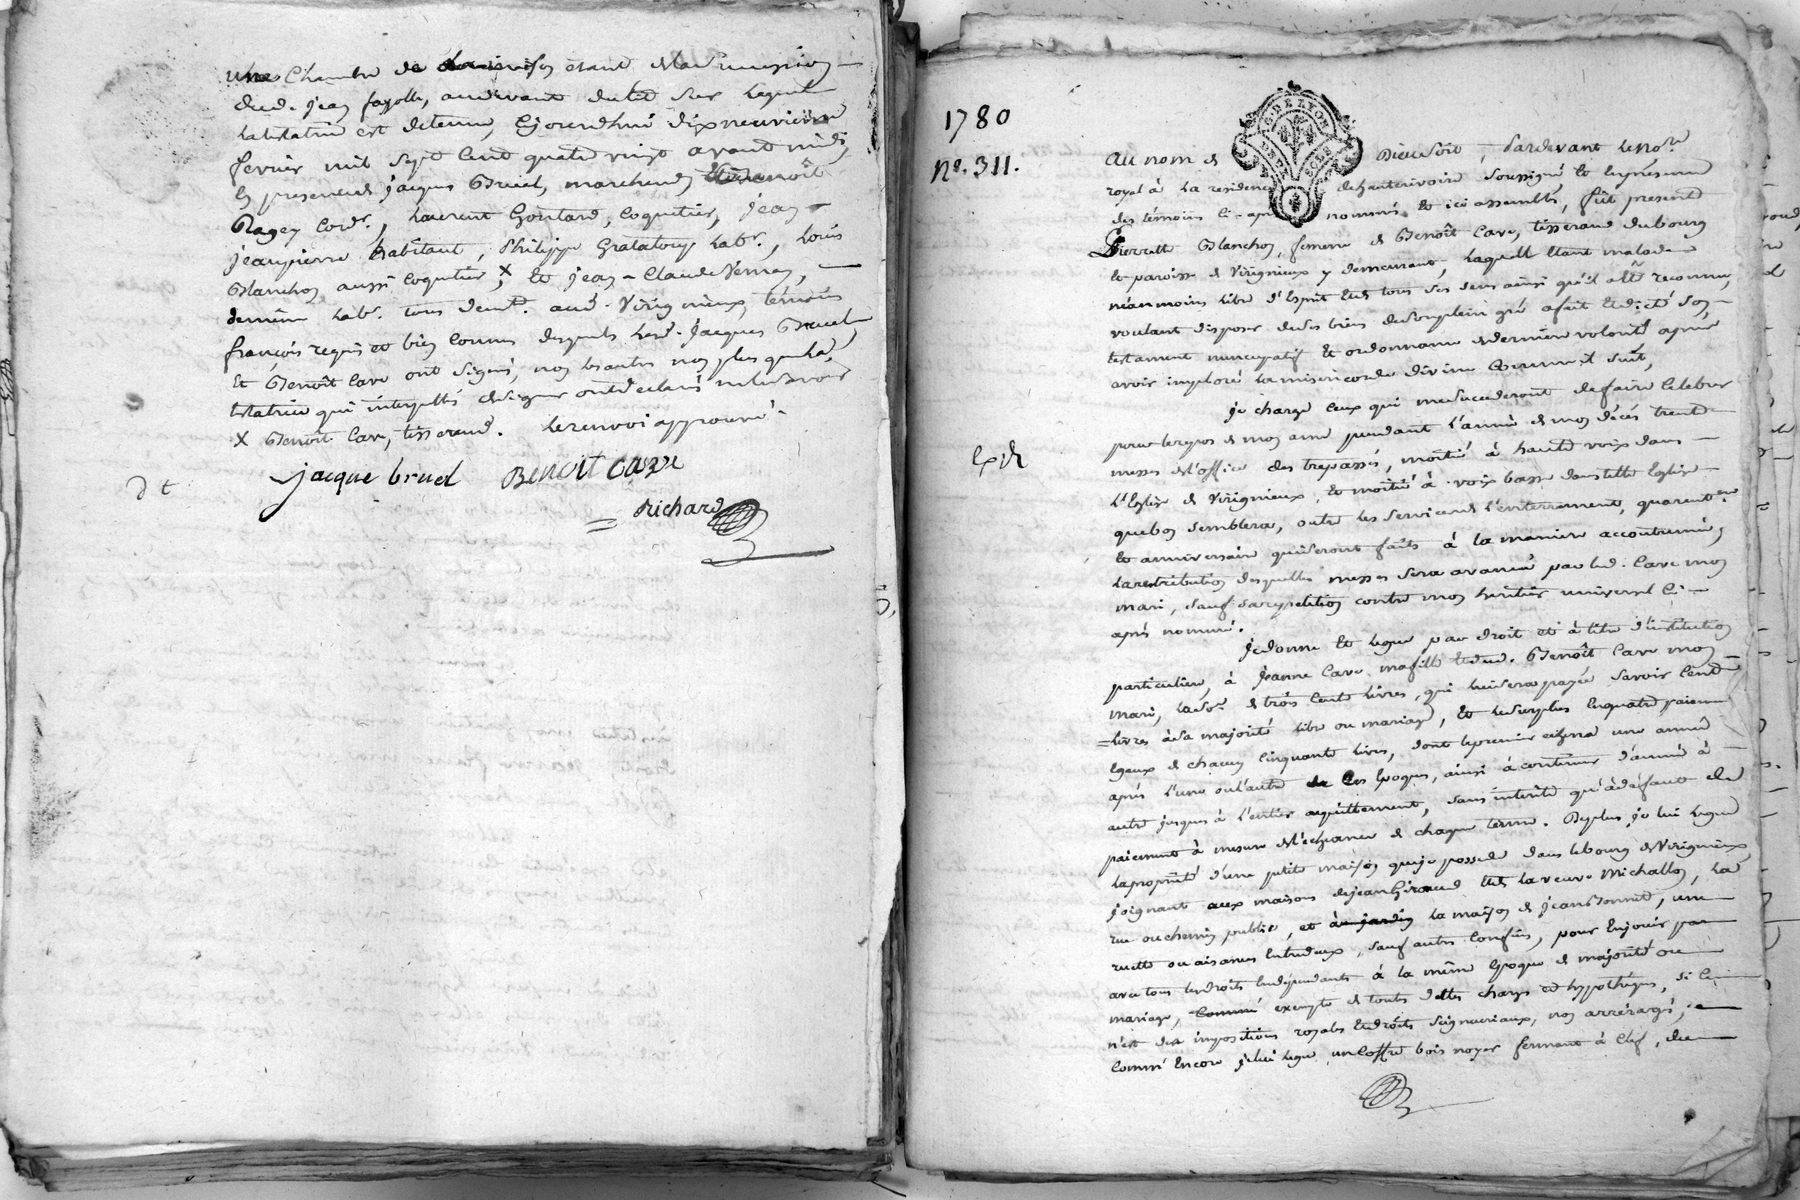 une Chambre de maison étant de la succession
dud. jean fayolle, audevant du lit sur lequel
la testatrice est detenue, Cejourdhui dixneuvieme
fevrier mil sept Cent quatre vingt avant midi,
Es presences de jacques Bruel, marchand, Benoît
Ragey Cordr., Laurent Goutard, Coquetier, jean
jeanpierre habitant, Philippe Grataloup labr., Louis
Blanchon aussi Coquetier, X et jean-Claude Venay,
dernier labr. tous demt. aud. Virignieux, témoins
françois requis et bien Connus desquels led. jacques Bruel
Et Benoît Cave ont signé, non les autres non plus que la
testatrice qui interpellés de signer ont déclaré ne le savoir
X Benoît Cave, tisserand. le renvoi approuvé.
jacque bruel BENOIT CAVE
Richard
1780
No. 311.
GDE LYON
Au nom de Dieu soit, Pardevant le nore.
royal à la residence de hauterivoire soussigné Et en presence
des témoins Ci-après nommés Et ici assemblés, fût presente
Pierrette Blanchon, femme de Benoît Cave, tisserand du bourg
Et paroisse de Virignieux y demeurant, laquelle étant malade
néanmoins libre d'Esprit Et de tous ses sens ainsi qu'il a été reconnu,
voulant disposer de ses biens de son plein gré a fait Et dicté son
testament nuncupatif Et ordonnance de derniere volonté après
avoir imploré la misericorde divine Comme il suit,
je charge Ceux qui me succederont de faire Celebrer
pour le repos de mon ame pendant l'année de mon décès trente
messes de l'office des trepassés, moitié à haute voix dans
l'Eglise de Virignieux, Et moitié à voix basse dans telle Eglise
que bon semblera, outre les services de l'enterrement, quarantne.
Et anniversaire qui seront faits à la maniere accoutumée,
la retribution desquelles messes sera avancée par led. Cave mon
mari, sauf sa repetition contre mon heritier universel Ci-
après nommé.
Je donne Et legue par droit Et à titre d'institution
particuliere, à Jeanne Cave ma fille Et dud. Benoît Cave mon
mari, la se. de trois Cents livres, qui lui sera payée savoir Cent
livres à sa majorité libre ou mariage, Et le surplus En quatre paiemens
Egaux de chacun Cinquante livres, dont le premier Echerra une année
après l'une ou l'autre de Ces Epoques, ainsi à continuer d'année à
autre jusques à l'entier acquittement, sans interêts qu'à défaut de
paiement à mesure de l'échéance de chaque terme. De plus je lui legue
la proprieté d'une petite maison que je possede dans le bourg de Virignieux
joignant aux maisons de jean Giraud Et de la veuve Michallon, la
rue ou chemin public, et la maison de jean Bonnet, une
ruette ou aisances Entre deux, sauf autres Confins, pour En jouir par
avec tous les droits En dépendants à la même Epoque de majorité ou
mariage, Comme exempte de toutes dettes charges et hypothèques, si Ce
n'est des impositions royales Et droits seigneuriaux, non arreragés;
Comme Encore je lui legue un Coffre bois noyer fermant à Clef, de